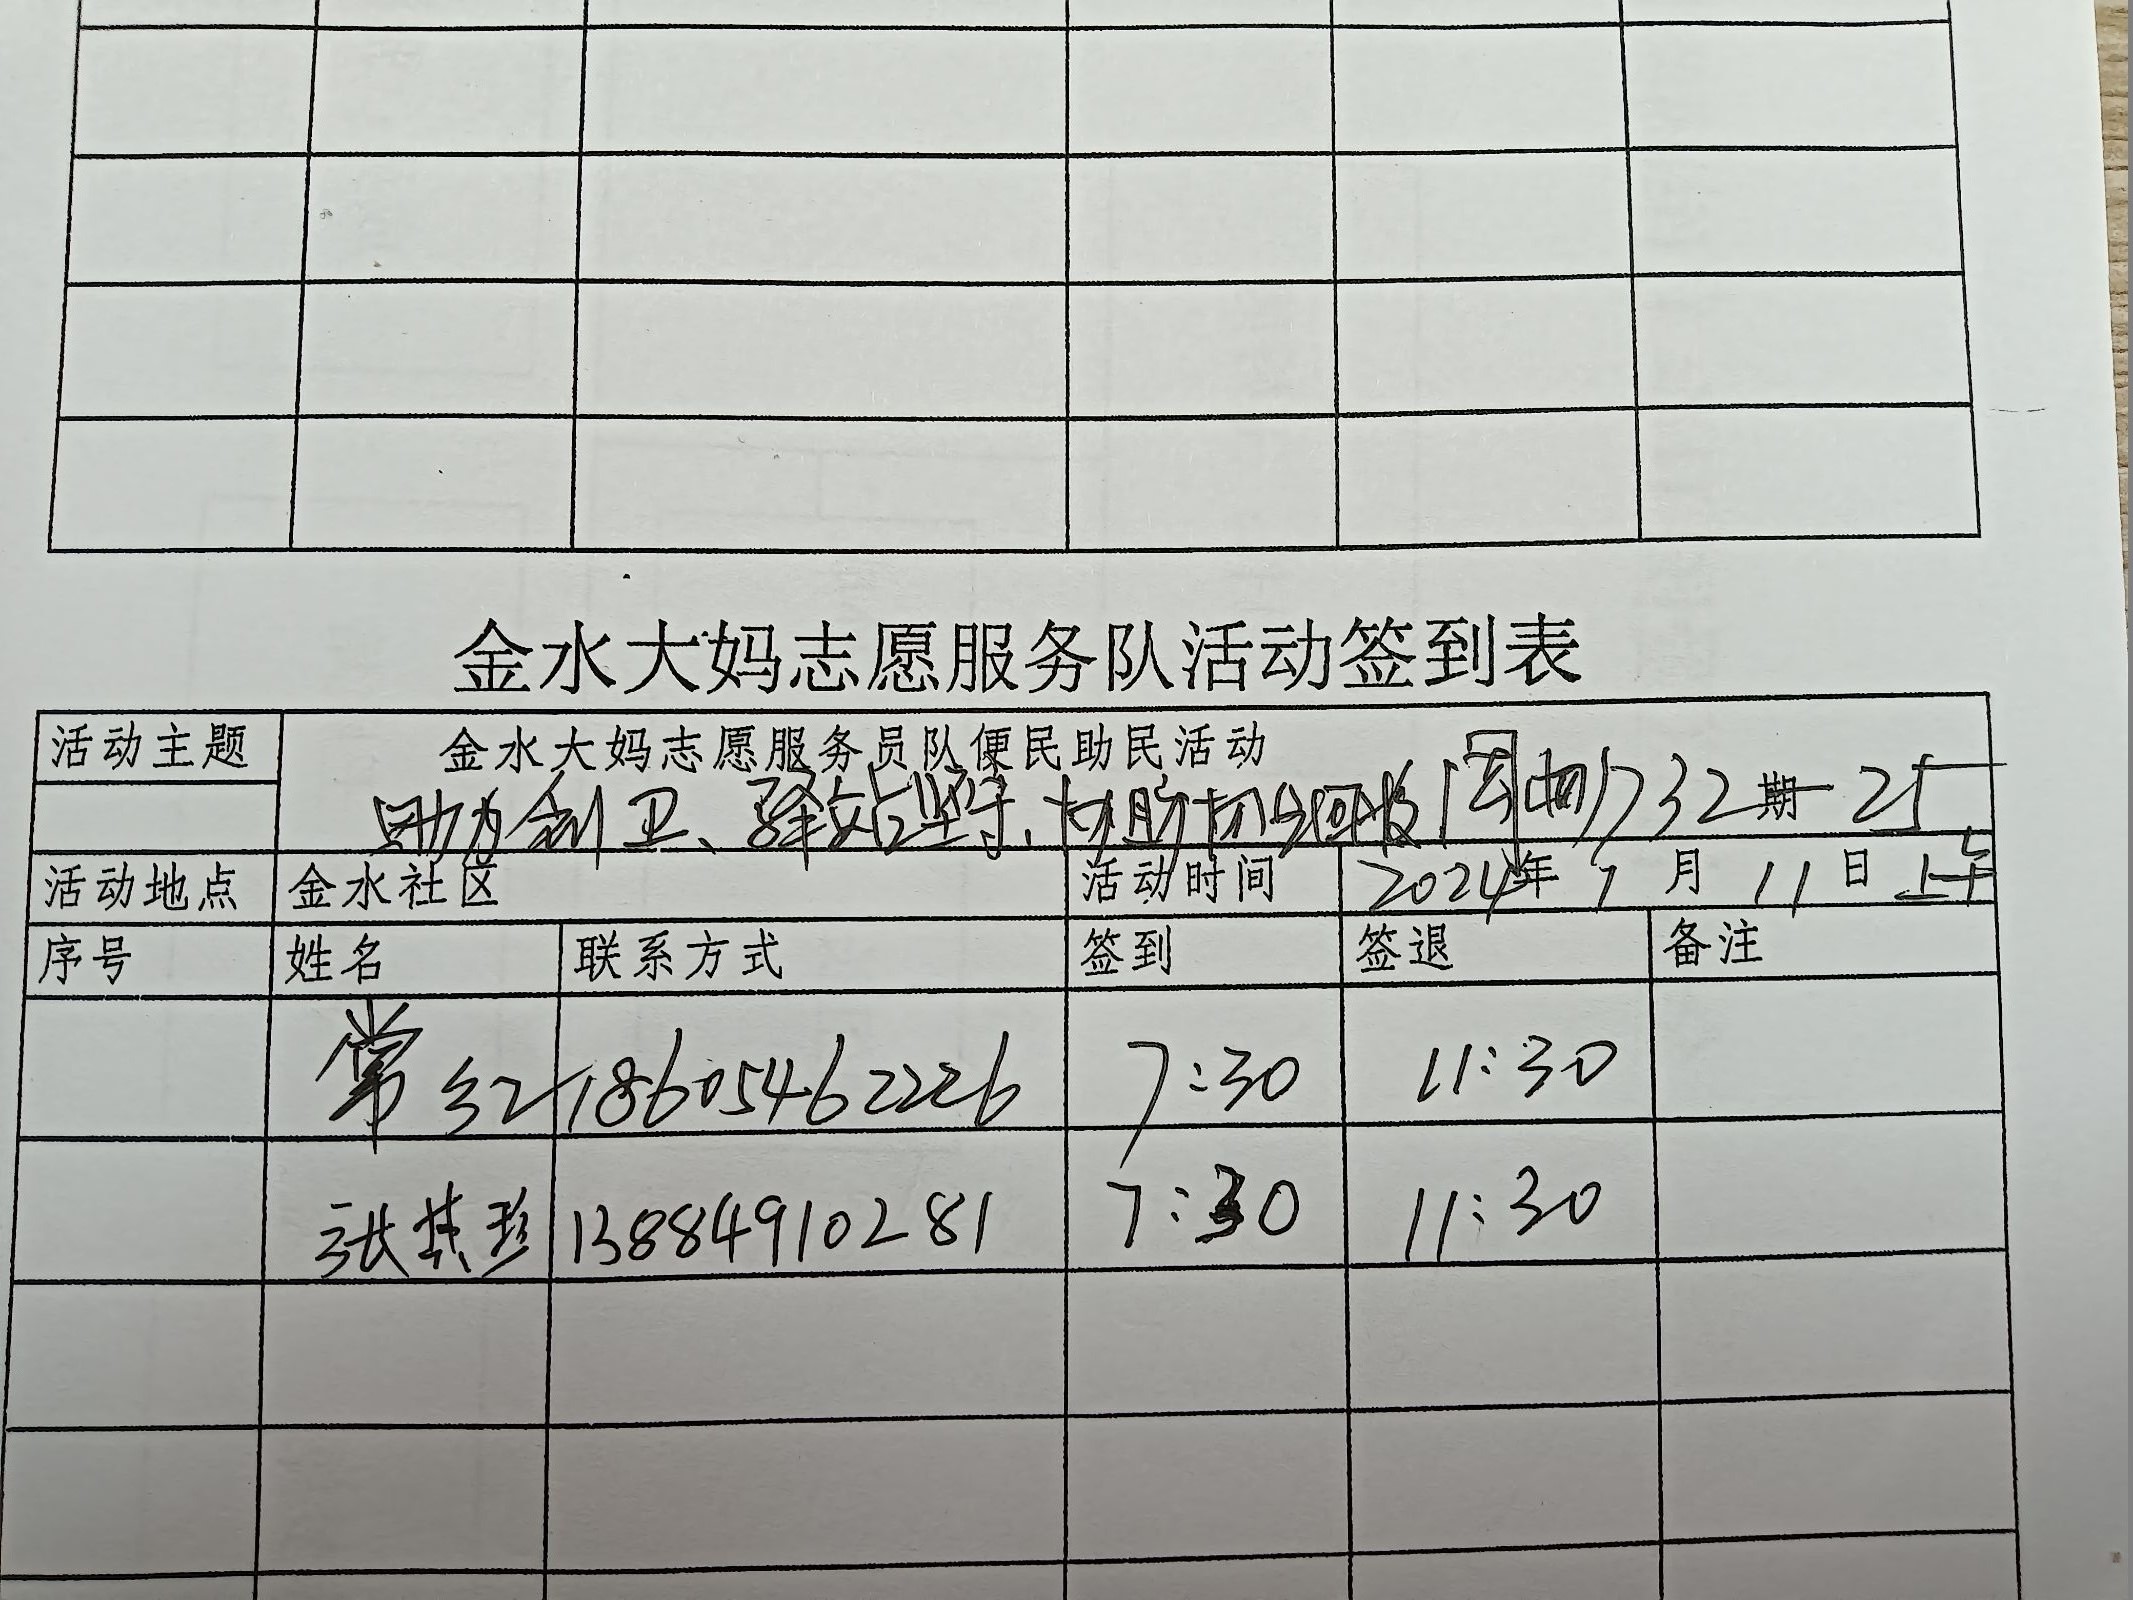 金水大妈志愿服务队活动签到表
活动主题 金水大妈志愿服务员队便民助民活动
助力创卫、驿站坚守、 732期-25
活动地点 金水社区 活动时间 2024年7月11日上午
序号 姓名 联系方式 签到 签退 备注
常红 18605462226 7:30 11:30
张共珍 13884910281 7:30 11:30